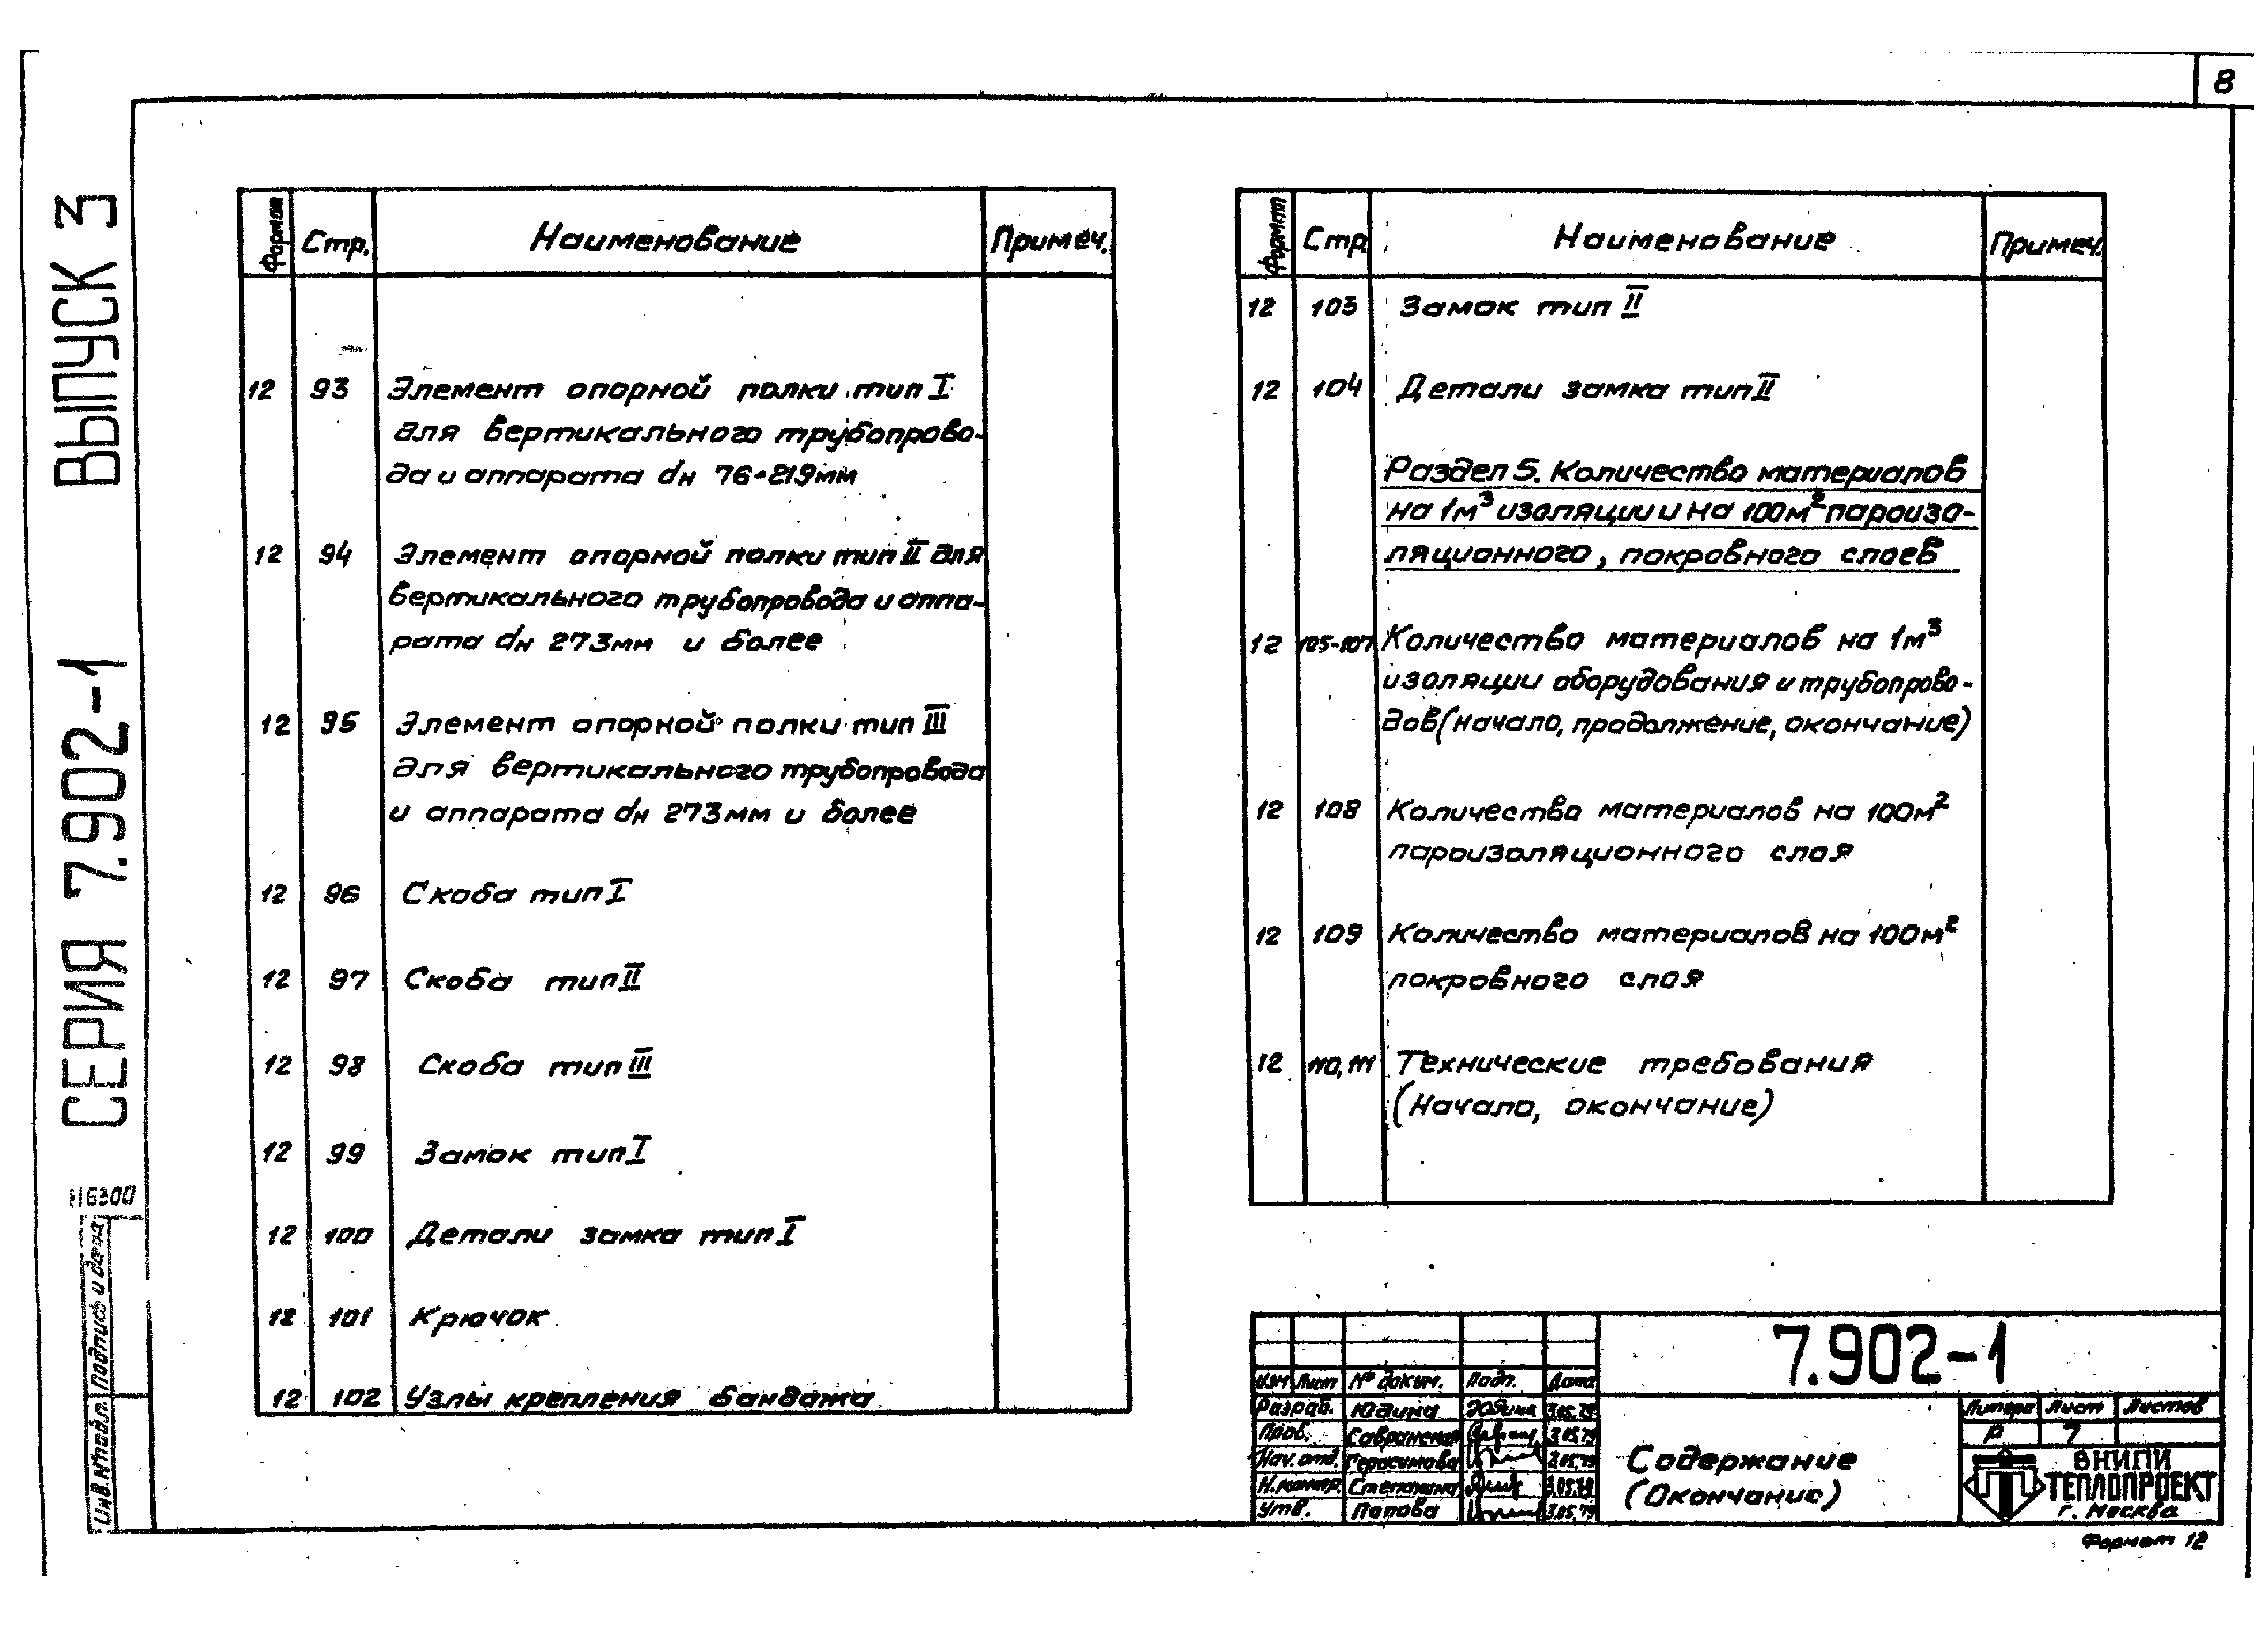 8
СЕРИЯ 7.902-1 ВЫПУСК 3
Формат Стр. Наименование Примеч.
12 93 Элемент опорной полки тип I
для вертикального трубопрово-
да и аппарата dн 76-219мм
12 94 Элемент опорной полки тип II для
вертикального трубопровода и аппа-
рата dн 273мм и более
12 95 Элемент опорной полки тип III
для вертикального трубопровода
и аппарата dн 273мм и более
12 96 Скоба тип I
12 97 Скоба тип II
12 98 Скоба тип III
12 99 Замок тип I
12 100 Детали замка тип I
12 101 Крючок
12 102 Узлы крепления бандажа
Формат Стр. Наименование Примеч.
12 103 Замок тип II
12 104 Детали замка тип II
Раздел 5. Количество материалов
на 1м³ изоляции и на 100м² пароизо-
ляционного, покровного слоев
12 105-107 Количество материалов на 1м³
изоляции оборудования и трубопрово-
дов (начало, продолжение, окончание)
12 108 Количество материалов на 100м²
пароизоляционного слоя
12 109 Количество материалов на 100м²
покровного слоя
12 110,111 Технические требования
(Начало, окончание)
16300
Инв.№подл. Подпись и дата
7.902-1
Изм Лист № докум. Подп. Дата
Разраб. Юдина Юдина 3.05.79
Пров. Савранская 3.05.79
Нач. отд. Герасимова 3.05.79
Н. контр. Степанина 3.05.79
Утв. Попова 3.05.79
Содержание
(Окончание)
Литера Лист Листов
Р 7
ВНИПИ
ТЕПЛОПРОЕКТ
г. Москва
Формат 12